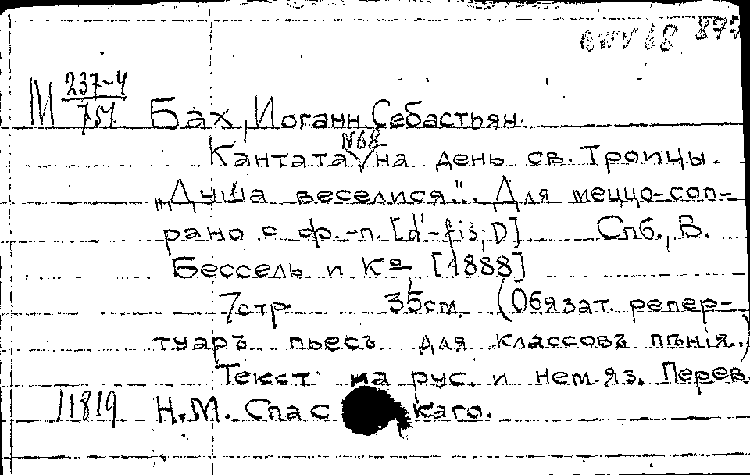 BWV 68 877
М 237-4/757 Бах, Иоганн Себастьян.
Кантата №68 на день св. Троицы.
„Душа веселися.". Для меццо-соп-
рано с ф.-п. [d'-fis, D] Спб., В.
Бессель и Кº, [1888]
7стр 35см (Обязат. репер-
туаръ пьесъ для классовъ пѣнiя.)
Текст на рус. и нем. яз. Перев.
11819 Н.М. Спас каго.